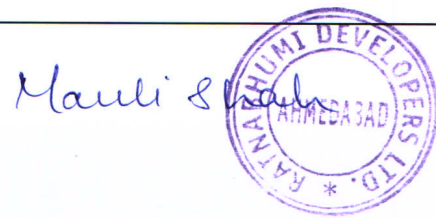 Mauli Shah
RATNABHUMI DEVELOPERS LTD. *
AHMEDABAD